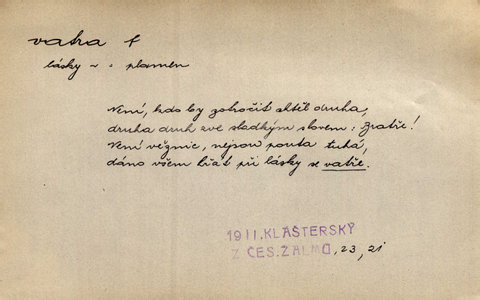 vatra f
lásky ~ : plamen
Není, kdo by zotročit chtěl druha,
druha druh zve sladkým slovem: bratře!
Není věznic, nejsou pouta tuhá,
dáno všem hřát při lásky se vatře.
1911. KLÁŠTERSKÝ
Z ČES. ŽALMŮ, 23, 21